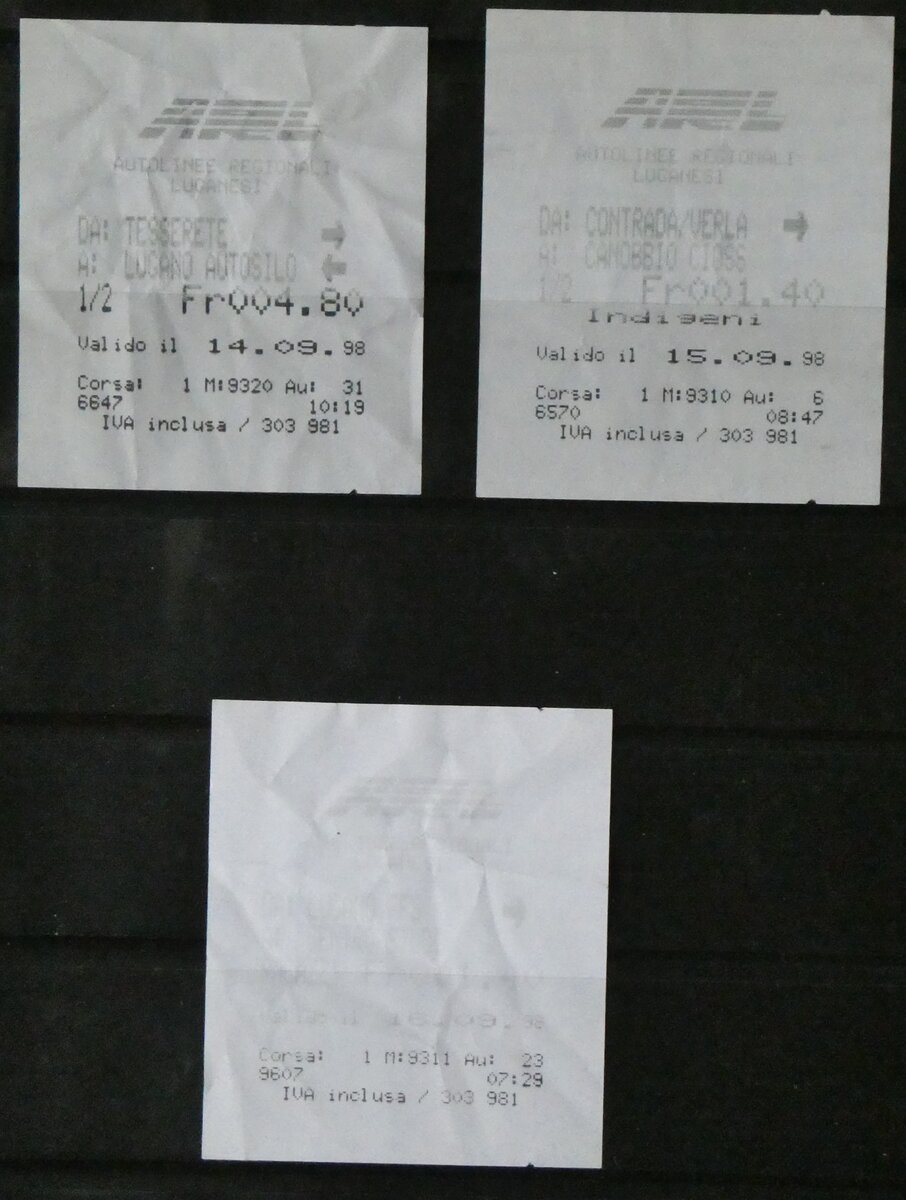 ARL
AUTOLINEE REGIONALI
LUGANESI
DA: TESSERETE →
A: LUGANO AUTOSILO ←
1/2 Fr004.80
Valido il 14.09.98
Corsa: 1 M:9320 Au: 31
6647 10:19
IVA inclusa / 303 981
ARL
AUTOLINEE REGIONALI
LUGANESI
DA: CONTRADA/VERLA →
A: CANOBBIO CIOSS
1/2 Fr001.40
Indigeni
Valido il 15.09.98
Corsa: 1 M:9310 Au: 6
6570 08:47
IVA inclusa / 303 981
ARL
Valido il 16.09.98
Corsa: 1 M:9311 Au: 23
9607 07:29
IVA inclusa / 303 981